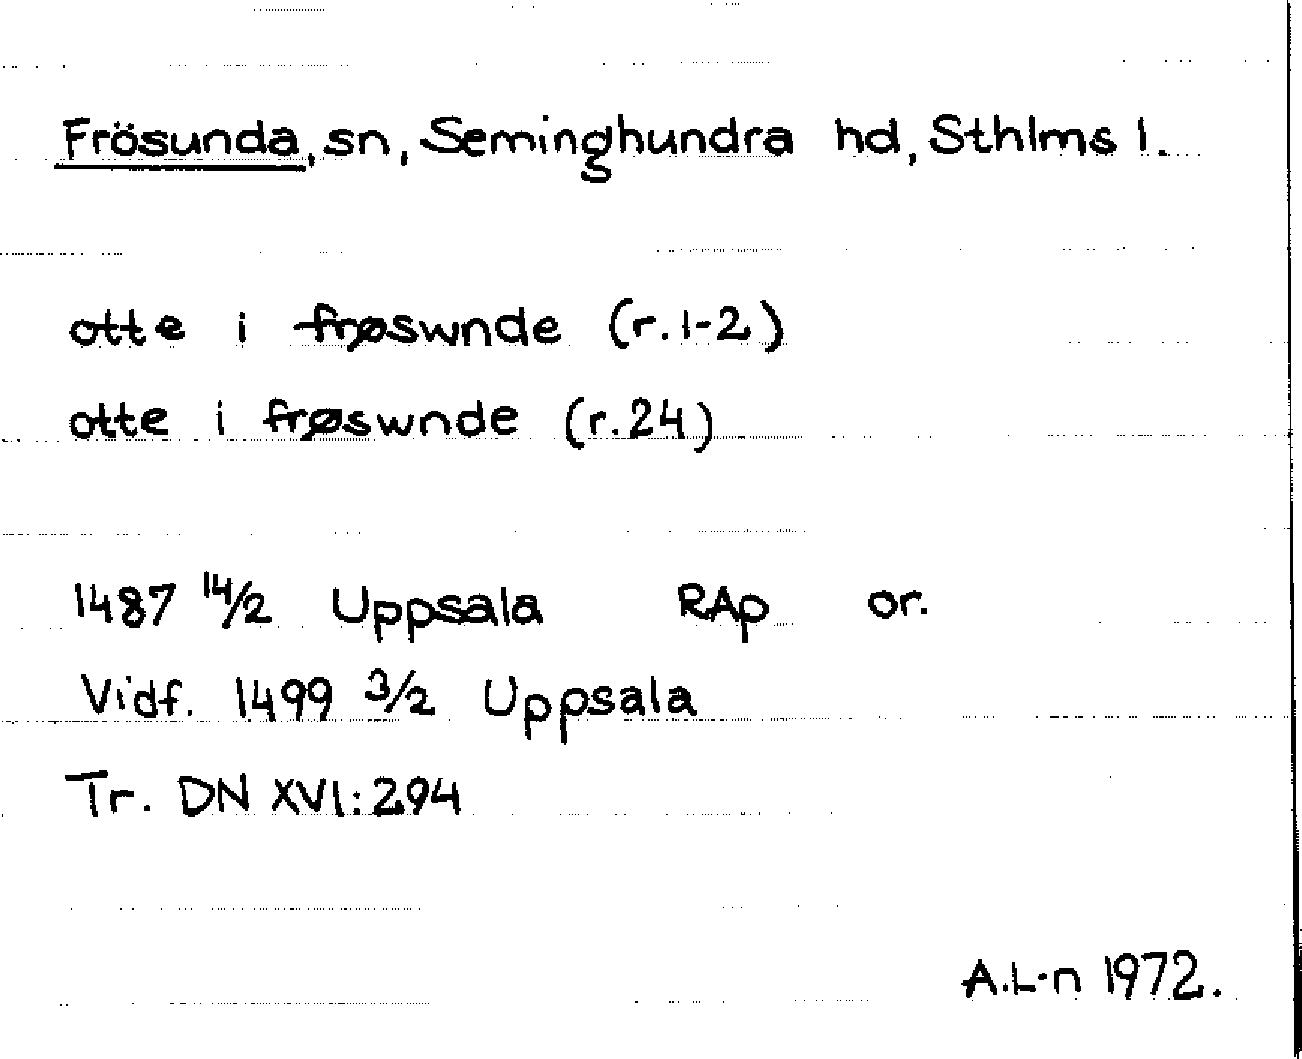 Frösunda, sn, Seminghundra hd, Sthlms l.
otte i frøswnde (r.1-2)
otte i frøswnde (r.24)
1487 14/2 Uppsala RAp or.
Vidf. 1499 3/2 Uppsala
Tr. DN XVI:294
A.L-n 1972.